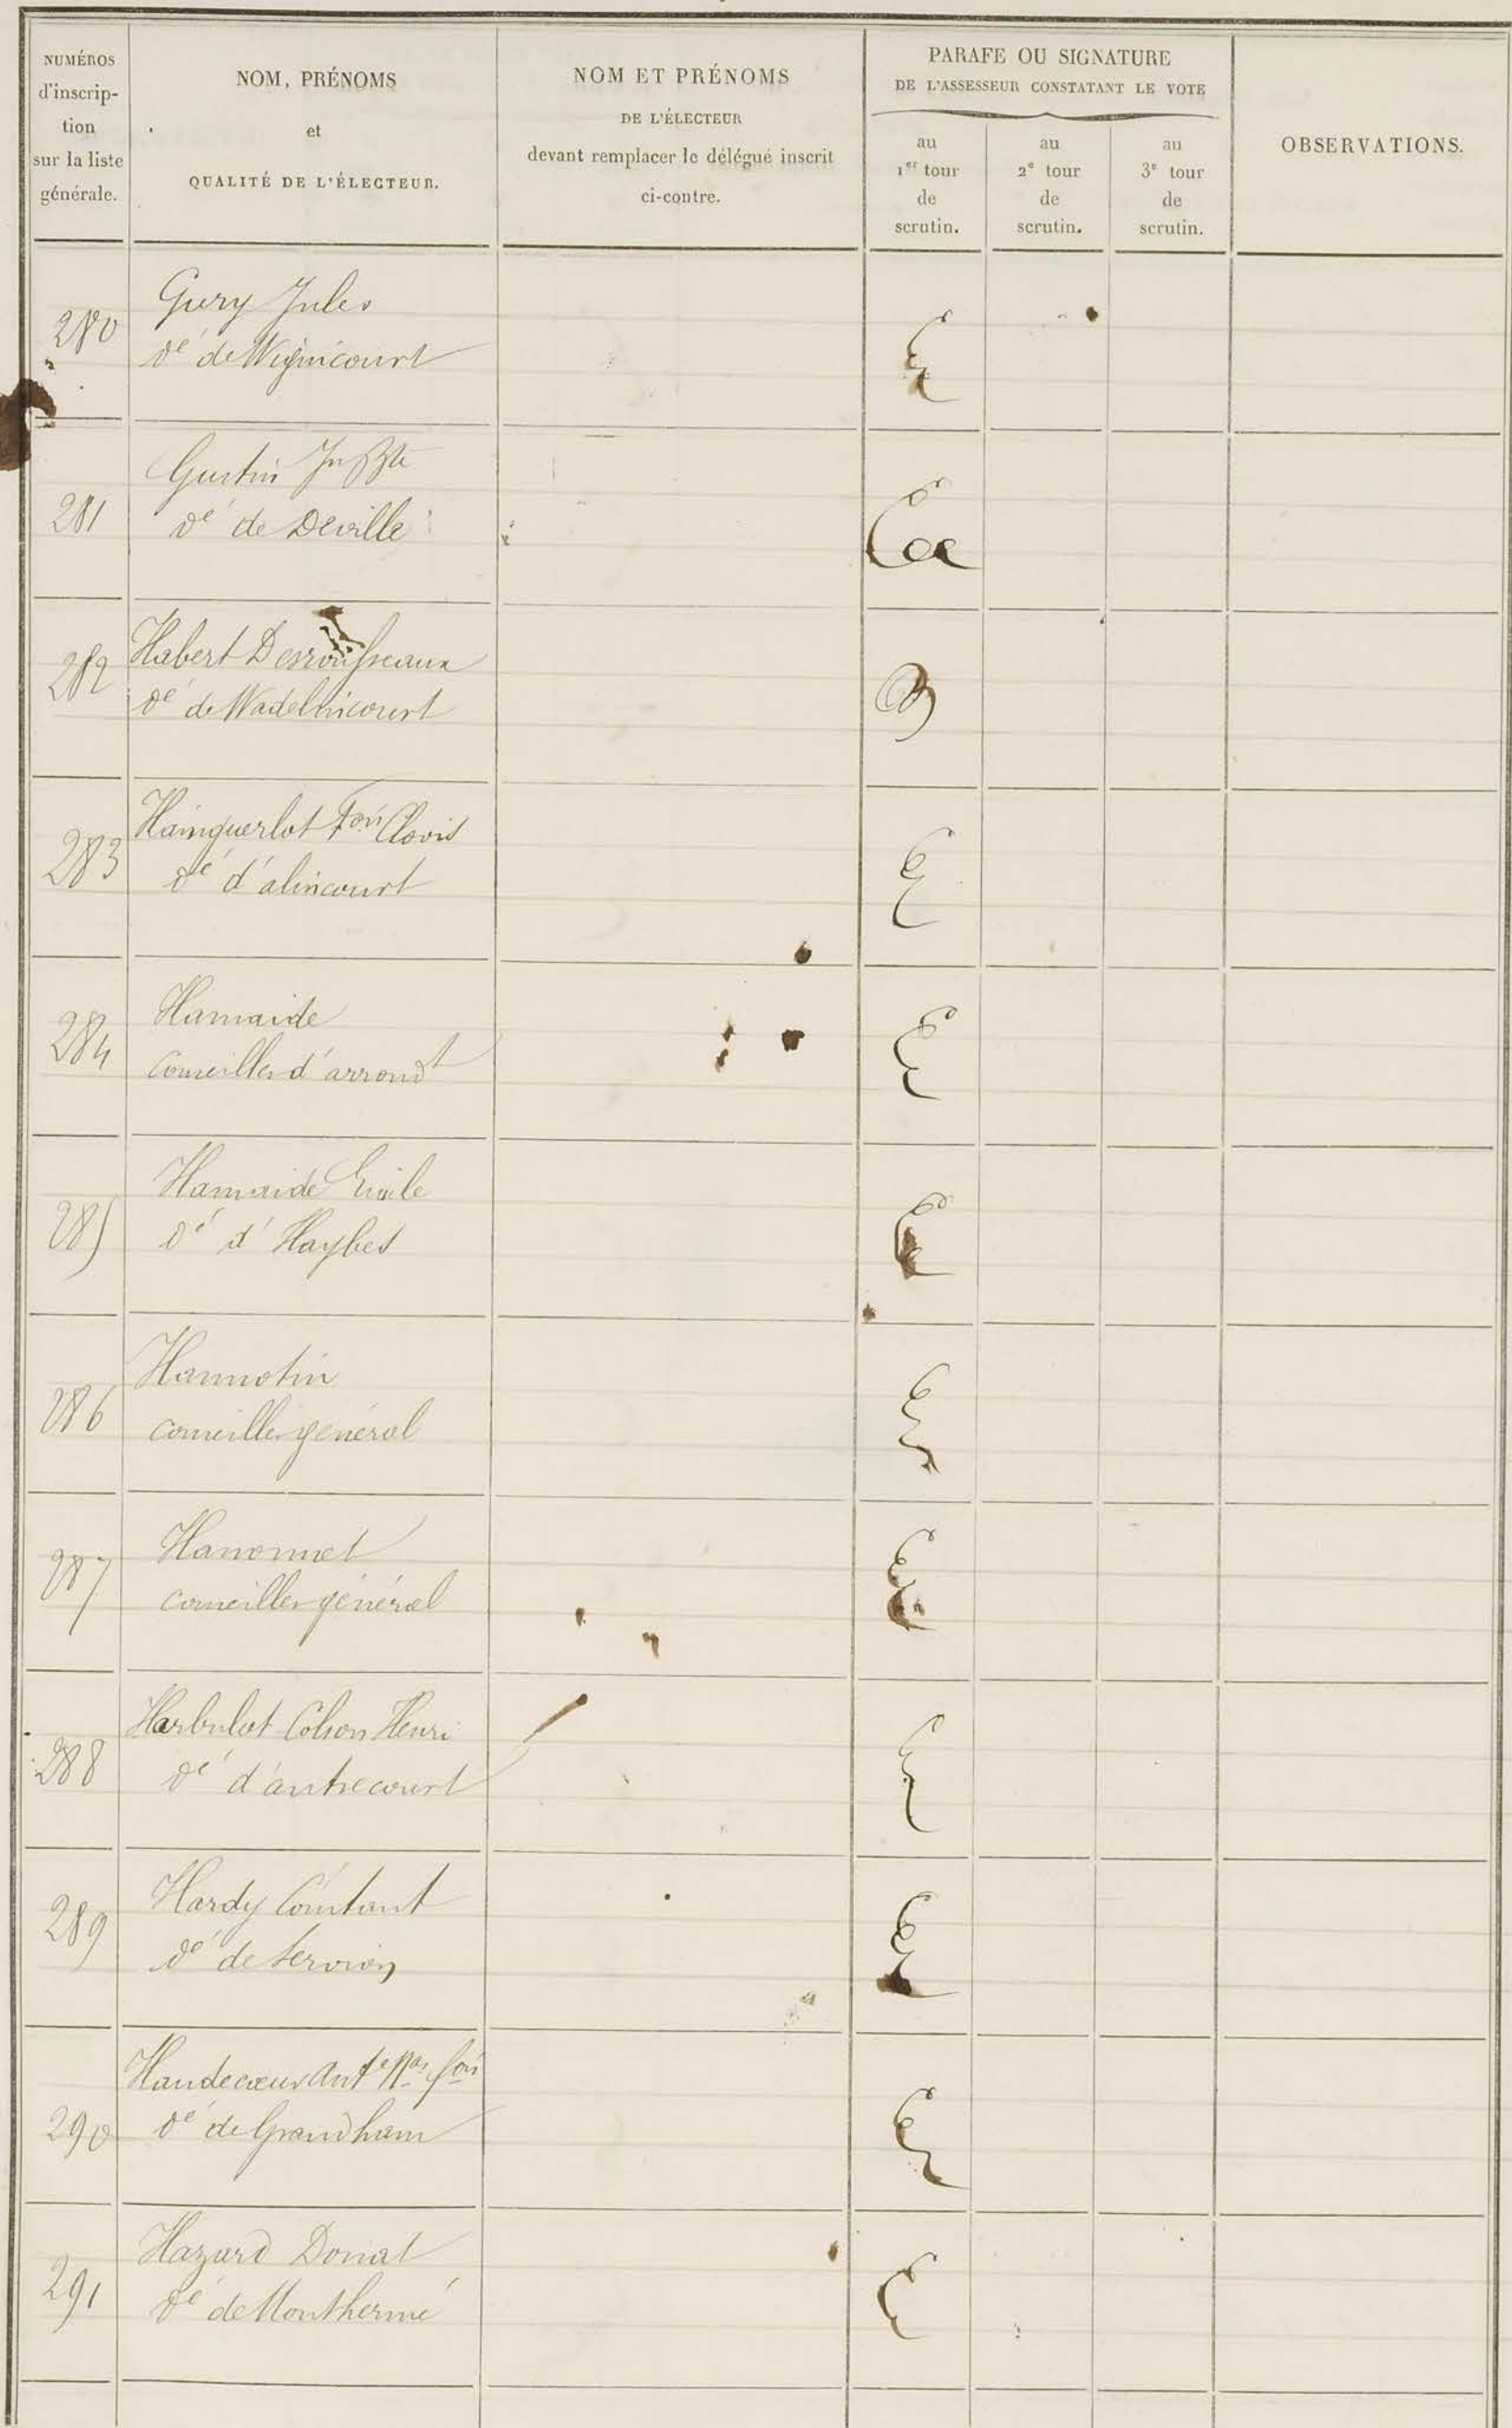 NUMÉROS
d'inscrip-
tion
sur la liste
générale.
NOM, PRÉNOMS
et
QUALITÉ DE L'ÉLECTEUR.
NOM ET PRÉNOMS
DE L'ÉLECTEUR
devant remplacer le délégué inscrit
ci-contre.
PARAFE OU SIGNATURE
DE L'ASSESSEUR CONSTATANT LE VOTE
au
1er tour
de
scrutin.
au
2e tour
de
scrutin.
au
3e tour
de
scrutin.
OBSERVATIONS.
280
Gury Jules
dé de Wignicourt
281
Gustin Jn Bte
dé de Deville
282
Habert Desrousseaux
dé de Wadelincourt
283
Hainguerlot Fois Clovis
dé d'alincourt
284
Hamaide
Conseiller d'arrondt
285
Hamaide Emile
dé d'Haybes
286
Hannotin
conseiller général
287
Hanonnet
conseiller général
288
Harbulot Colson Henri
dé d'autrecourt
289
Hardy Constant
dé de Servion
290
Haudecoeur Ant Nas fois
dé de Grandham
291
Hazard Donat
dé de Monthermé